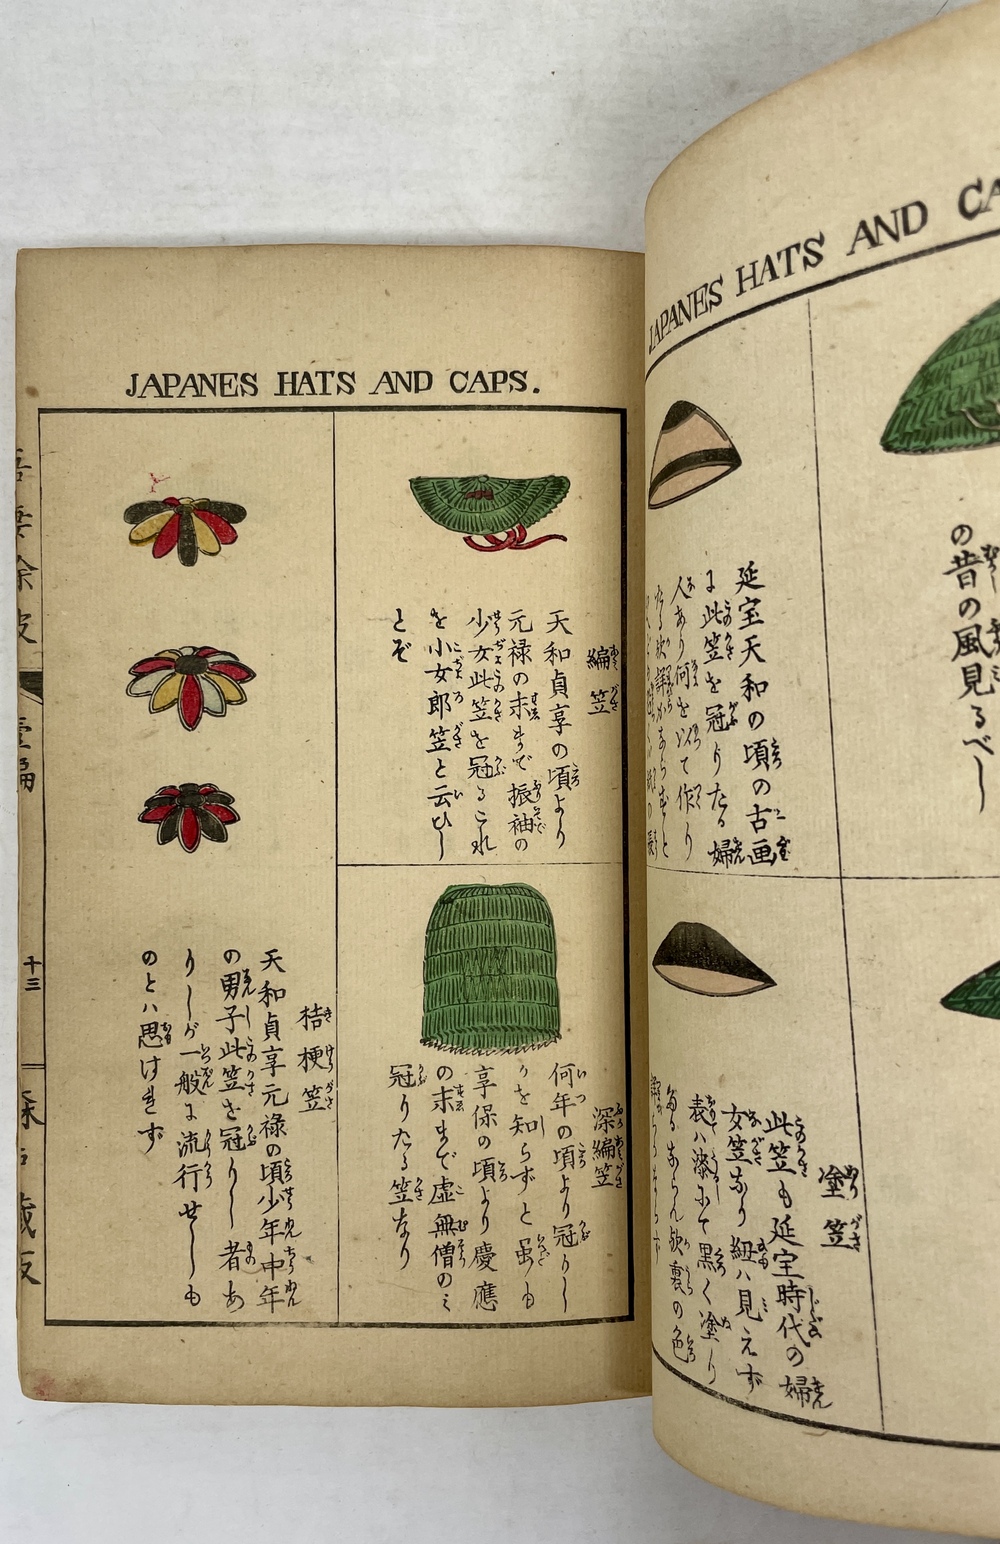 JAPANES HATS AND CA
JAPANES HATS AND CAPS.
の昔の風見るべし
延宝天和の頃の古画
に此笠を冠りたる婦
人あり何を以て作り
塗笠
此笠も延宝時代の婦
女笠なり紐ハ見えず
表ハ漆にて黒く塗り
裏の色
編笠
天和貞享の頃より
元禄の末まで振袖の
少女此笠を冠るこれ
を小女郎笠と云ひし
とぞ
深編笠
何年の頃より冠りし
かを知らずと虽も
享保の頃より慶應
の末まで虚無僧のミ
冠りたる笠なり
桔梗笠
天和貞享元禄の頃少年中年
の男子此笠を冠りし者あ
りしが一般に流行せしも
のとハ思はれず
壹編
十三